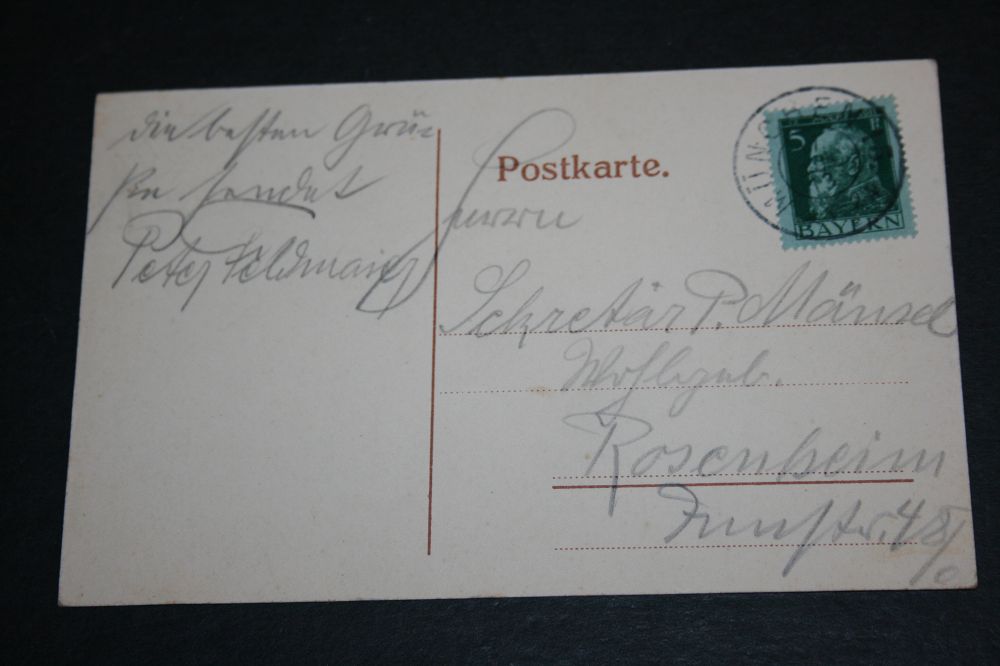 die besten Grü-
ße sendet
Peter Feldmaier
Postkarte.
Herrn
Sekretär P. Mänsel
Wohlgeb.
Rosenheim
Innstr. 48/0
MÜNCHEN
5
BAYERN